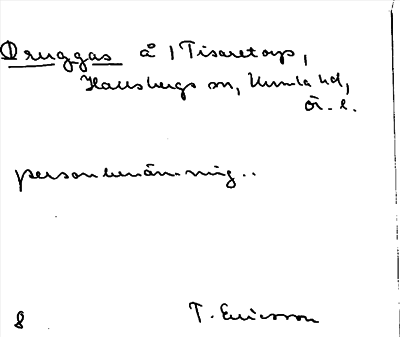 Druggas å 1 Tisaretorp,
Hallsbergs sn, Kumla hd,
Ör. l.
personbenämning..
8 T. Ericsson